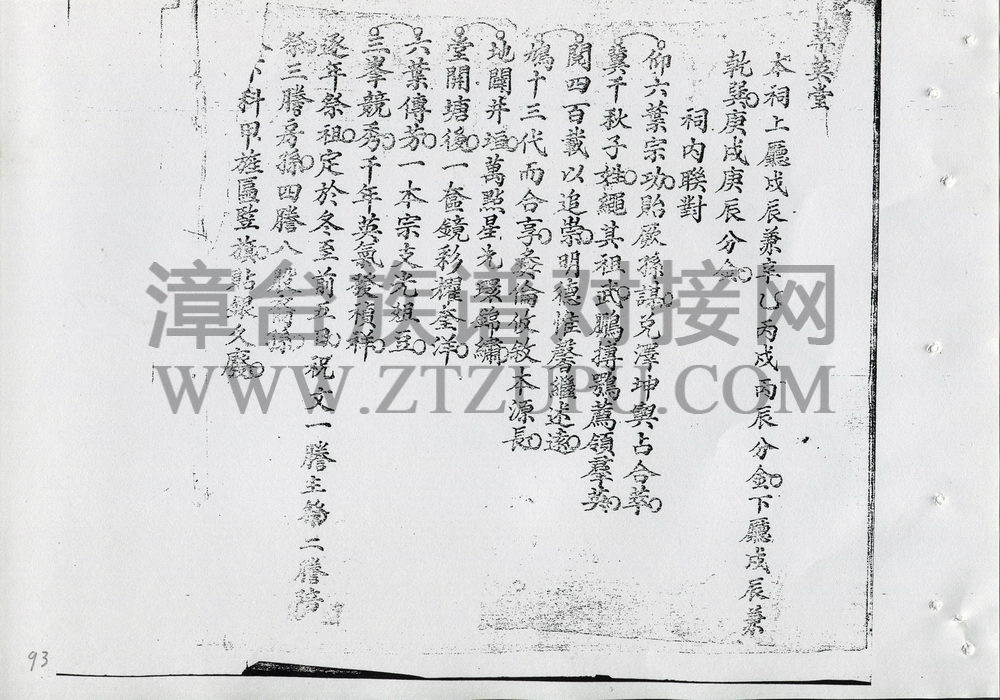 萃英堂
本祠上廳戌辰兼辛乙丙戌丙辰分金下廳戌辰兼
乾巽庚戌庚辰分金
祠內聯對
仰六葉宗功貽厥孫謀兌澤坤輿占合萃
冀千秋子姓繩其祖武鵬摶鶚薦領羣英
閱四百載以追崇明德惟馨繼述遠
鳩十三代而合享彝倫攸敘本源長
地闢井垣萬點星光環錦繡
堂開塘後一奩鏡彩耀奎洋
六葉傳芳一本宗支光俎豆
三峯競秀千年英氣發禎祥
逐年祭祖定於冬至前五日祝文一謄主祭二謄陪
祭三謄房孫四謄八
下科甲雄匾豎旗貼銀久廢
漳台族谱对接网
WWW.ZTZUPU.COM
93